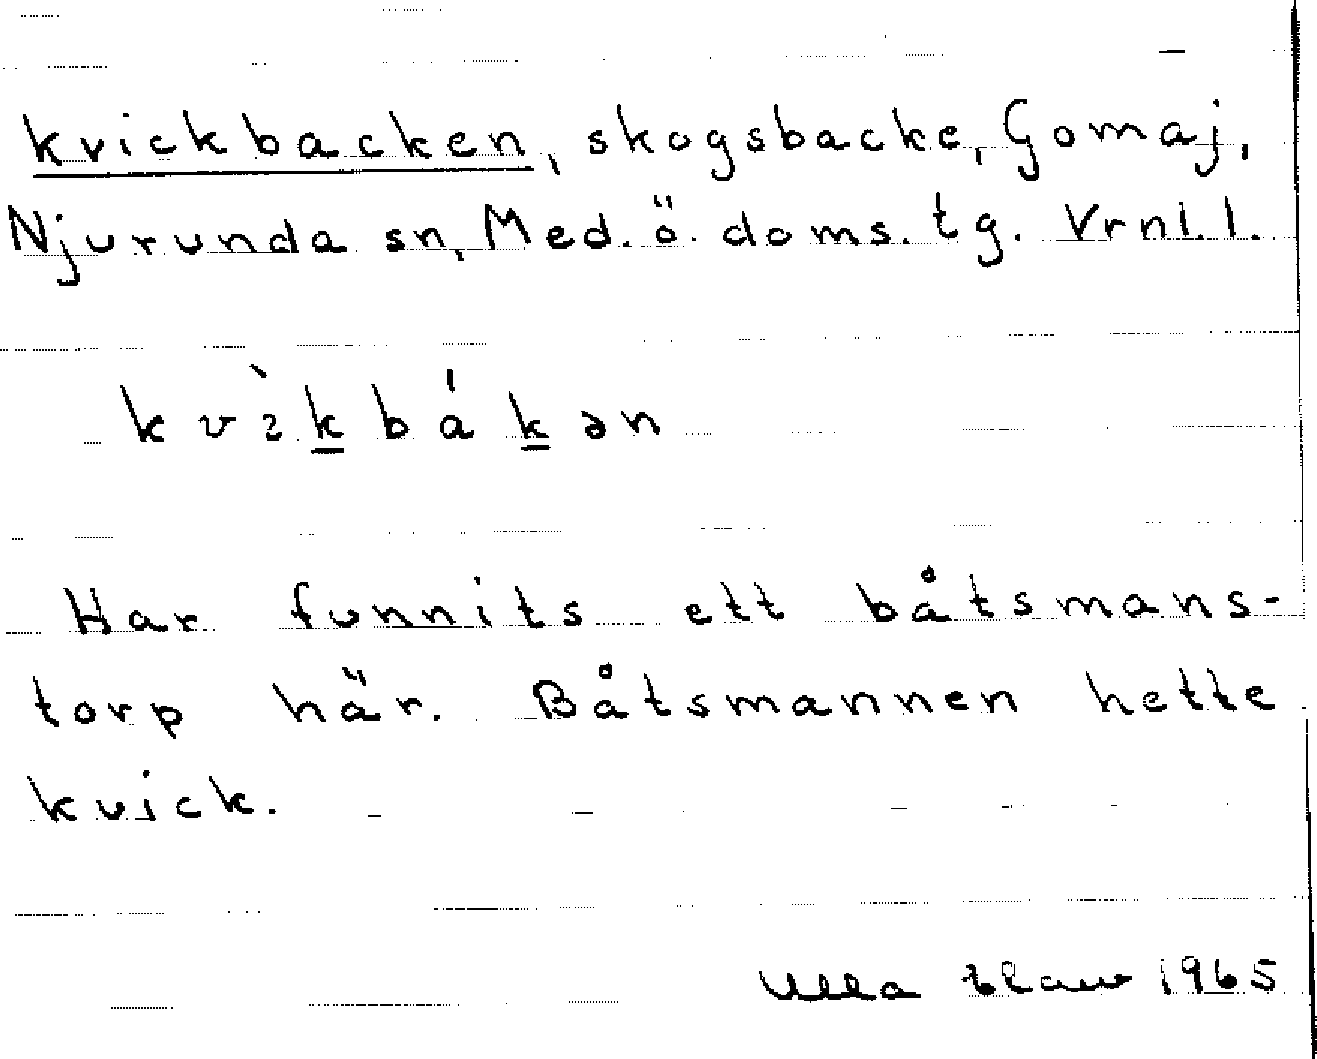 kvickbacken, skogsbacke, Gomaj,
Njurunda sn, Med. ö. doms. tg. Vrnl. l.
kvìkbákən
Har funnits ett båtsmans-
torp här. Båtsmannen hette
kvick.
Ulla 1965